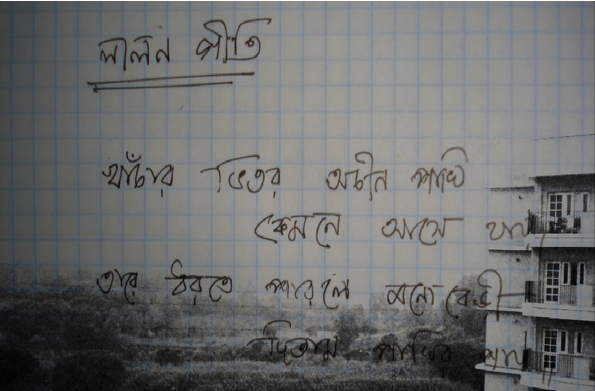 লালন গীতি
খাঁচার ভিতর অচীন পাখি
কেমনে আসে যায়,
তারে ধরতে পারলে মনো বেড়ী
দিতাম পাখির পায়,